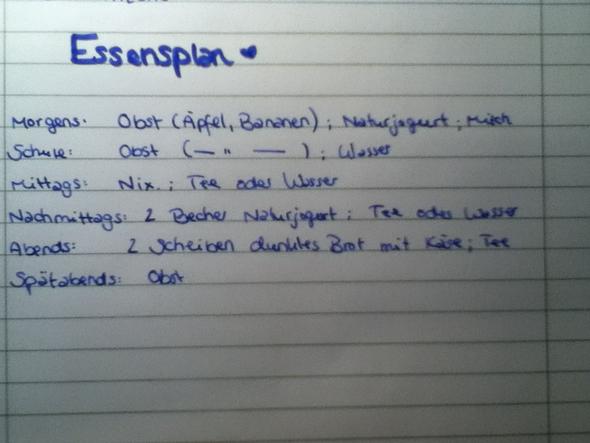 Essensplan ♥
Morgens: Obst (Äpfel, Bananen) ; Naturjogurt ; Milch
Schule: Obst ( — " — ) ; Wasser
Mittags: Nix. ; Tee oder Wasser
Nachmittags: 2 Becher Naturjogurt ; Tee oder Wasser
Abends: 2 Scheiben dunkles Brot mit Käse ; Tee
Spätabends: Obst